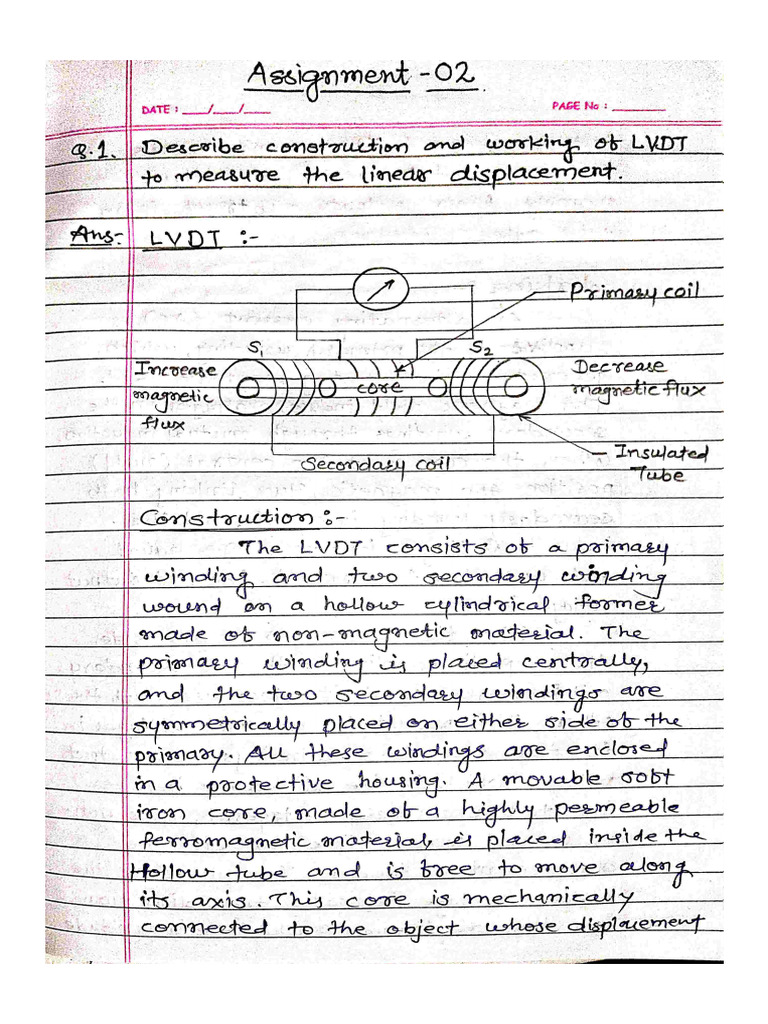 Assignment - 02.
DATE : ___/___/___
PAGE No : ________
Q.1. Describe construction and working of LVDT
to measure the linear displacement.
Ans:- LVDT :-
Primary coil
S1
S2
Increase
magnetic
flux
core
Decrease
magnetic flux
Secondary coil
Insulated
Tube
Construction :-
The LVDT consists of a primary
winding and two secondary winding
wound on a hollow cylindrical former
made of non-magnetic material. The
primary winding is placed centrally,
and the two secondary windings are
symmetrically placed on either side of the
primary. All these windings are enclosed
in a protective housing. A movable soft
iron core, made of a highly permeable
ferromagnetic material, is placed inside the
Hollow tube and is free to move along
its axis. This core is mechanically
connected to the object whose displacement